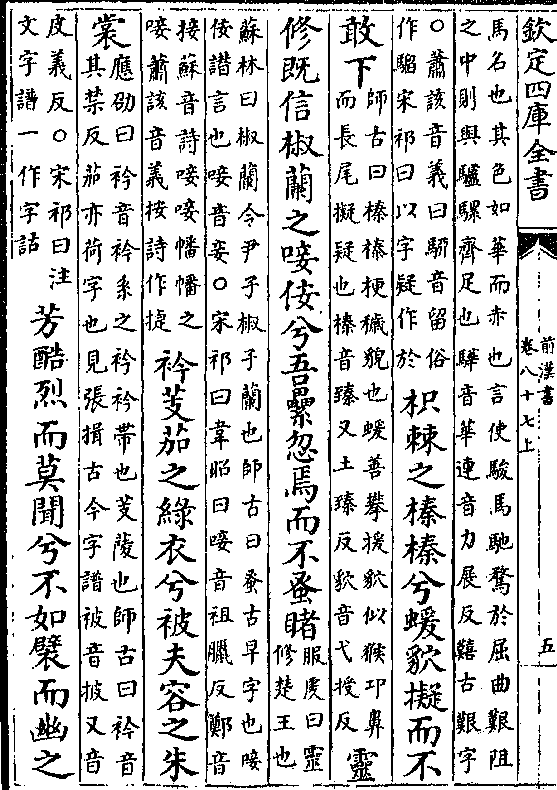 欽定四庫全書
前漢書
卷八十七上
五
馬名也其色如華而赤也言使駿馬馳騖於屈曲艱阻
之中則與驢騾齊足也驊音華連音力展反囏古艱字
○蕭該音義曰駵音留俗
作騮宋祁曰以字疑作於
枳棘之榛榛兮蝯貁擬而不
敢下
師古曰榛榛梗穢貌也蝯善攀援貁似猴卬鼻
而長尾擬疑也榛音臻又土臻反貁音弋授反
靈
修既信椒蘭之唼佞兮吾纍忽焉而不蚤睹
服虔曰靈
修楚王也
蘇林曰椒蘭令尹子椒子蘭也師古曰蚤古早字也唼
佞譖言也唼音妾○宋祁曰韋昭曰唼音祖臘反鄭音
接蘇音詩唼唼幡幡之
唼蕭該音義按詩作捷
衿芰茄之綠衣兮被夫容之朱
裳
應劭曰衿音衿系之衿衿帶也芰陵也師古曰衿音
其禁反茄亦荷字也見張揖古今字譜被音披又音
皮義反○宋祁曰注
文字譜一作字詁
芳酷烈而莫聞兮不如襞而幽之